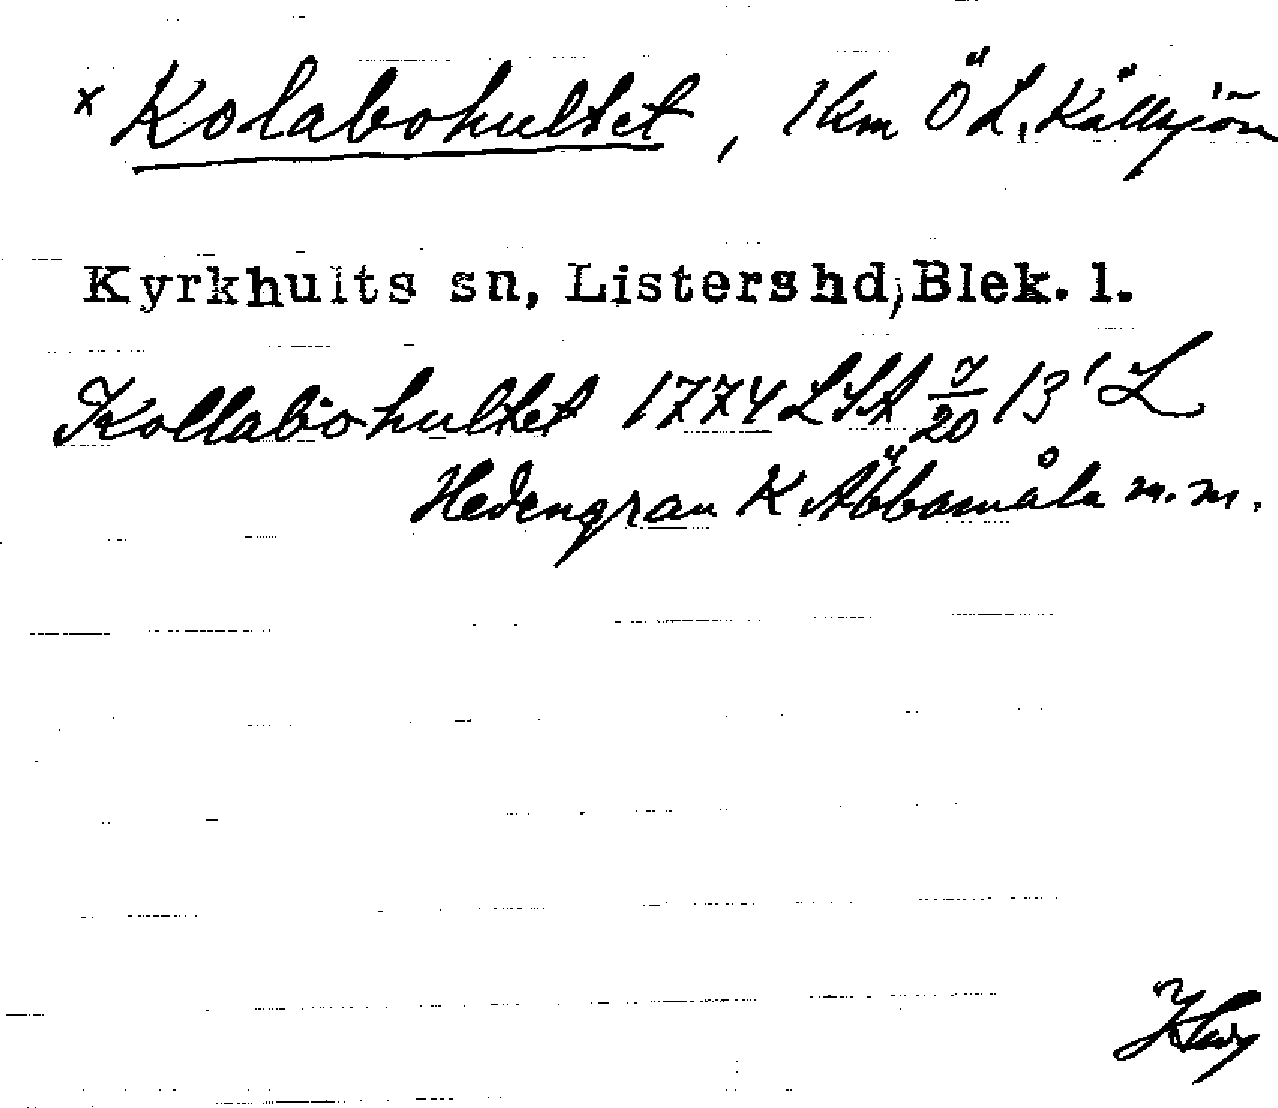 x Kolabohultet, 1 km Ö L. Källsjön
Kyrkhults sn, Listers hd, Blek. l.
Kollabohultet 1774 LSA 7/20 13' L
Hedengran K Äbbamåla m.m.